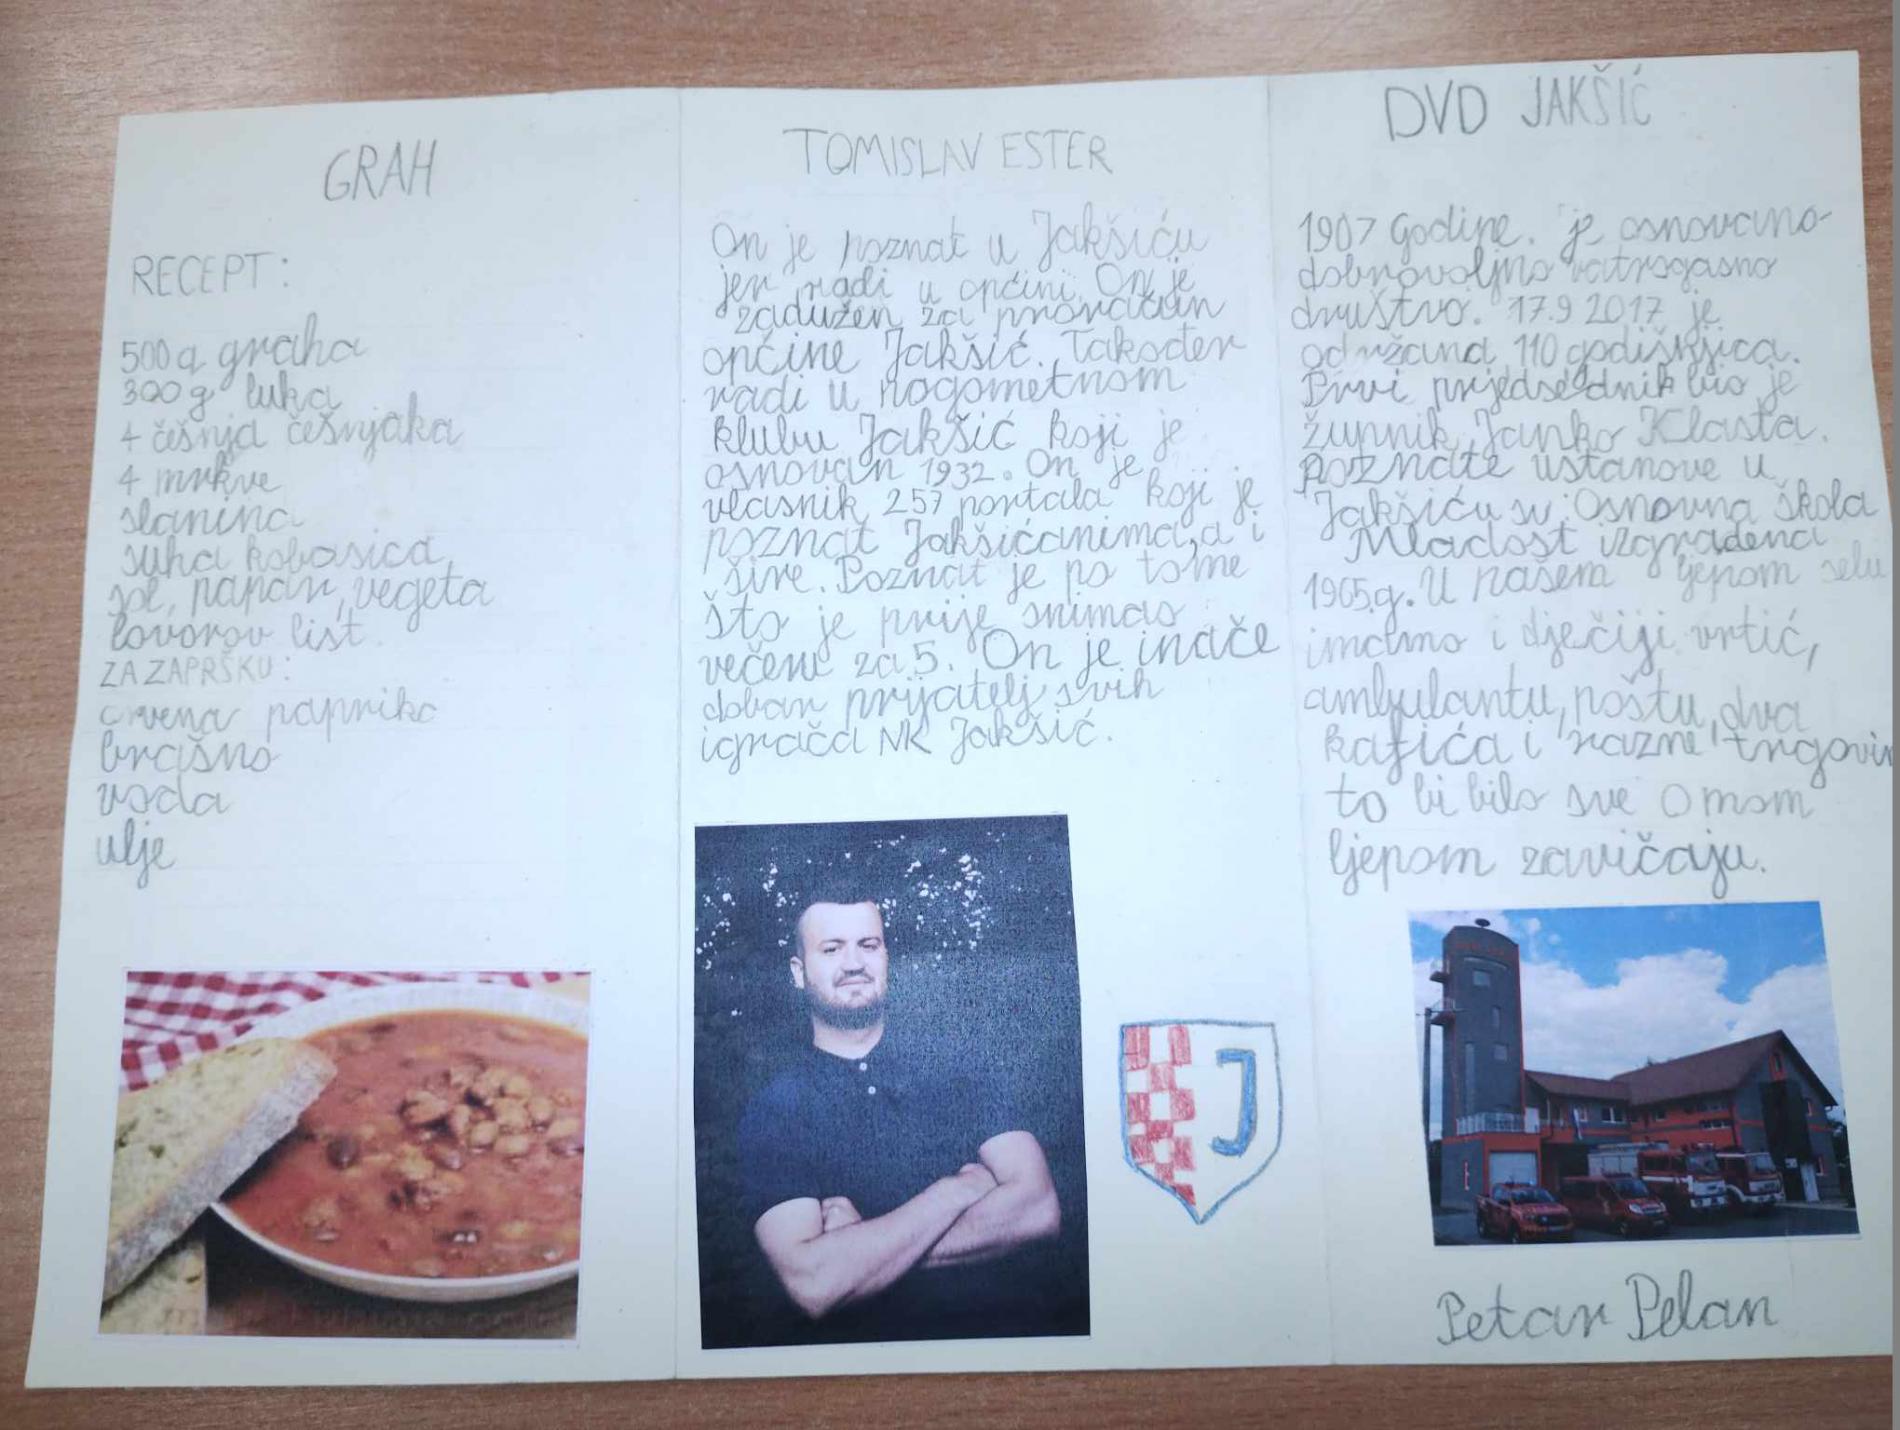 GRAH
RECEPT:
500 g graha
300 g luka
4 češnja češnjaka
4 mrkve
slanina
suha kobasica
sol, papar, vegeta
lovorov list.
ZA ZAPRŠKU:
crvena paprika
brašno
voda
ulje
TOMISLAV ESTER
On je poznat u Jakšiću
jer radi u općini. On je
zadužen za proračun
općine Jakšić. Također
radi u nogometnom
klubu Jakšić koji je
osnovan 1932. On je
vlasnik 257 portala koji je
poznat Jakšićanima, a i
šire. Poznat je po tome
što je prije snimao
večeru za 5. On je inače
dobar prijatelj svih
igrača NK Jakšić.
J
DVD JAKŠIĆ
1907 Godine. je osnovano
dobrovoljno vatrogasno
društvo. 17.9 2017 je
održana 110 godišnjica.
Prvi prjedsednik bio je
župnik Janko Klasta.
poznate ustanove u
Jakšiću su: Osnovna škola
Mladost izgrađena
1965.g. U našem ljepom selu
imamo i dječiji vrtić,
ambulantu, poštu, dva
kafića i razne trgovin
to bi bilo sve o mom
ljepom zavičaju.
Petar Pelan